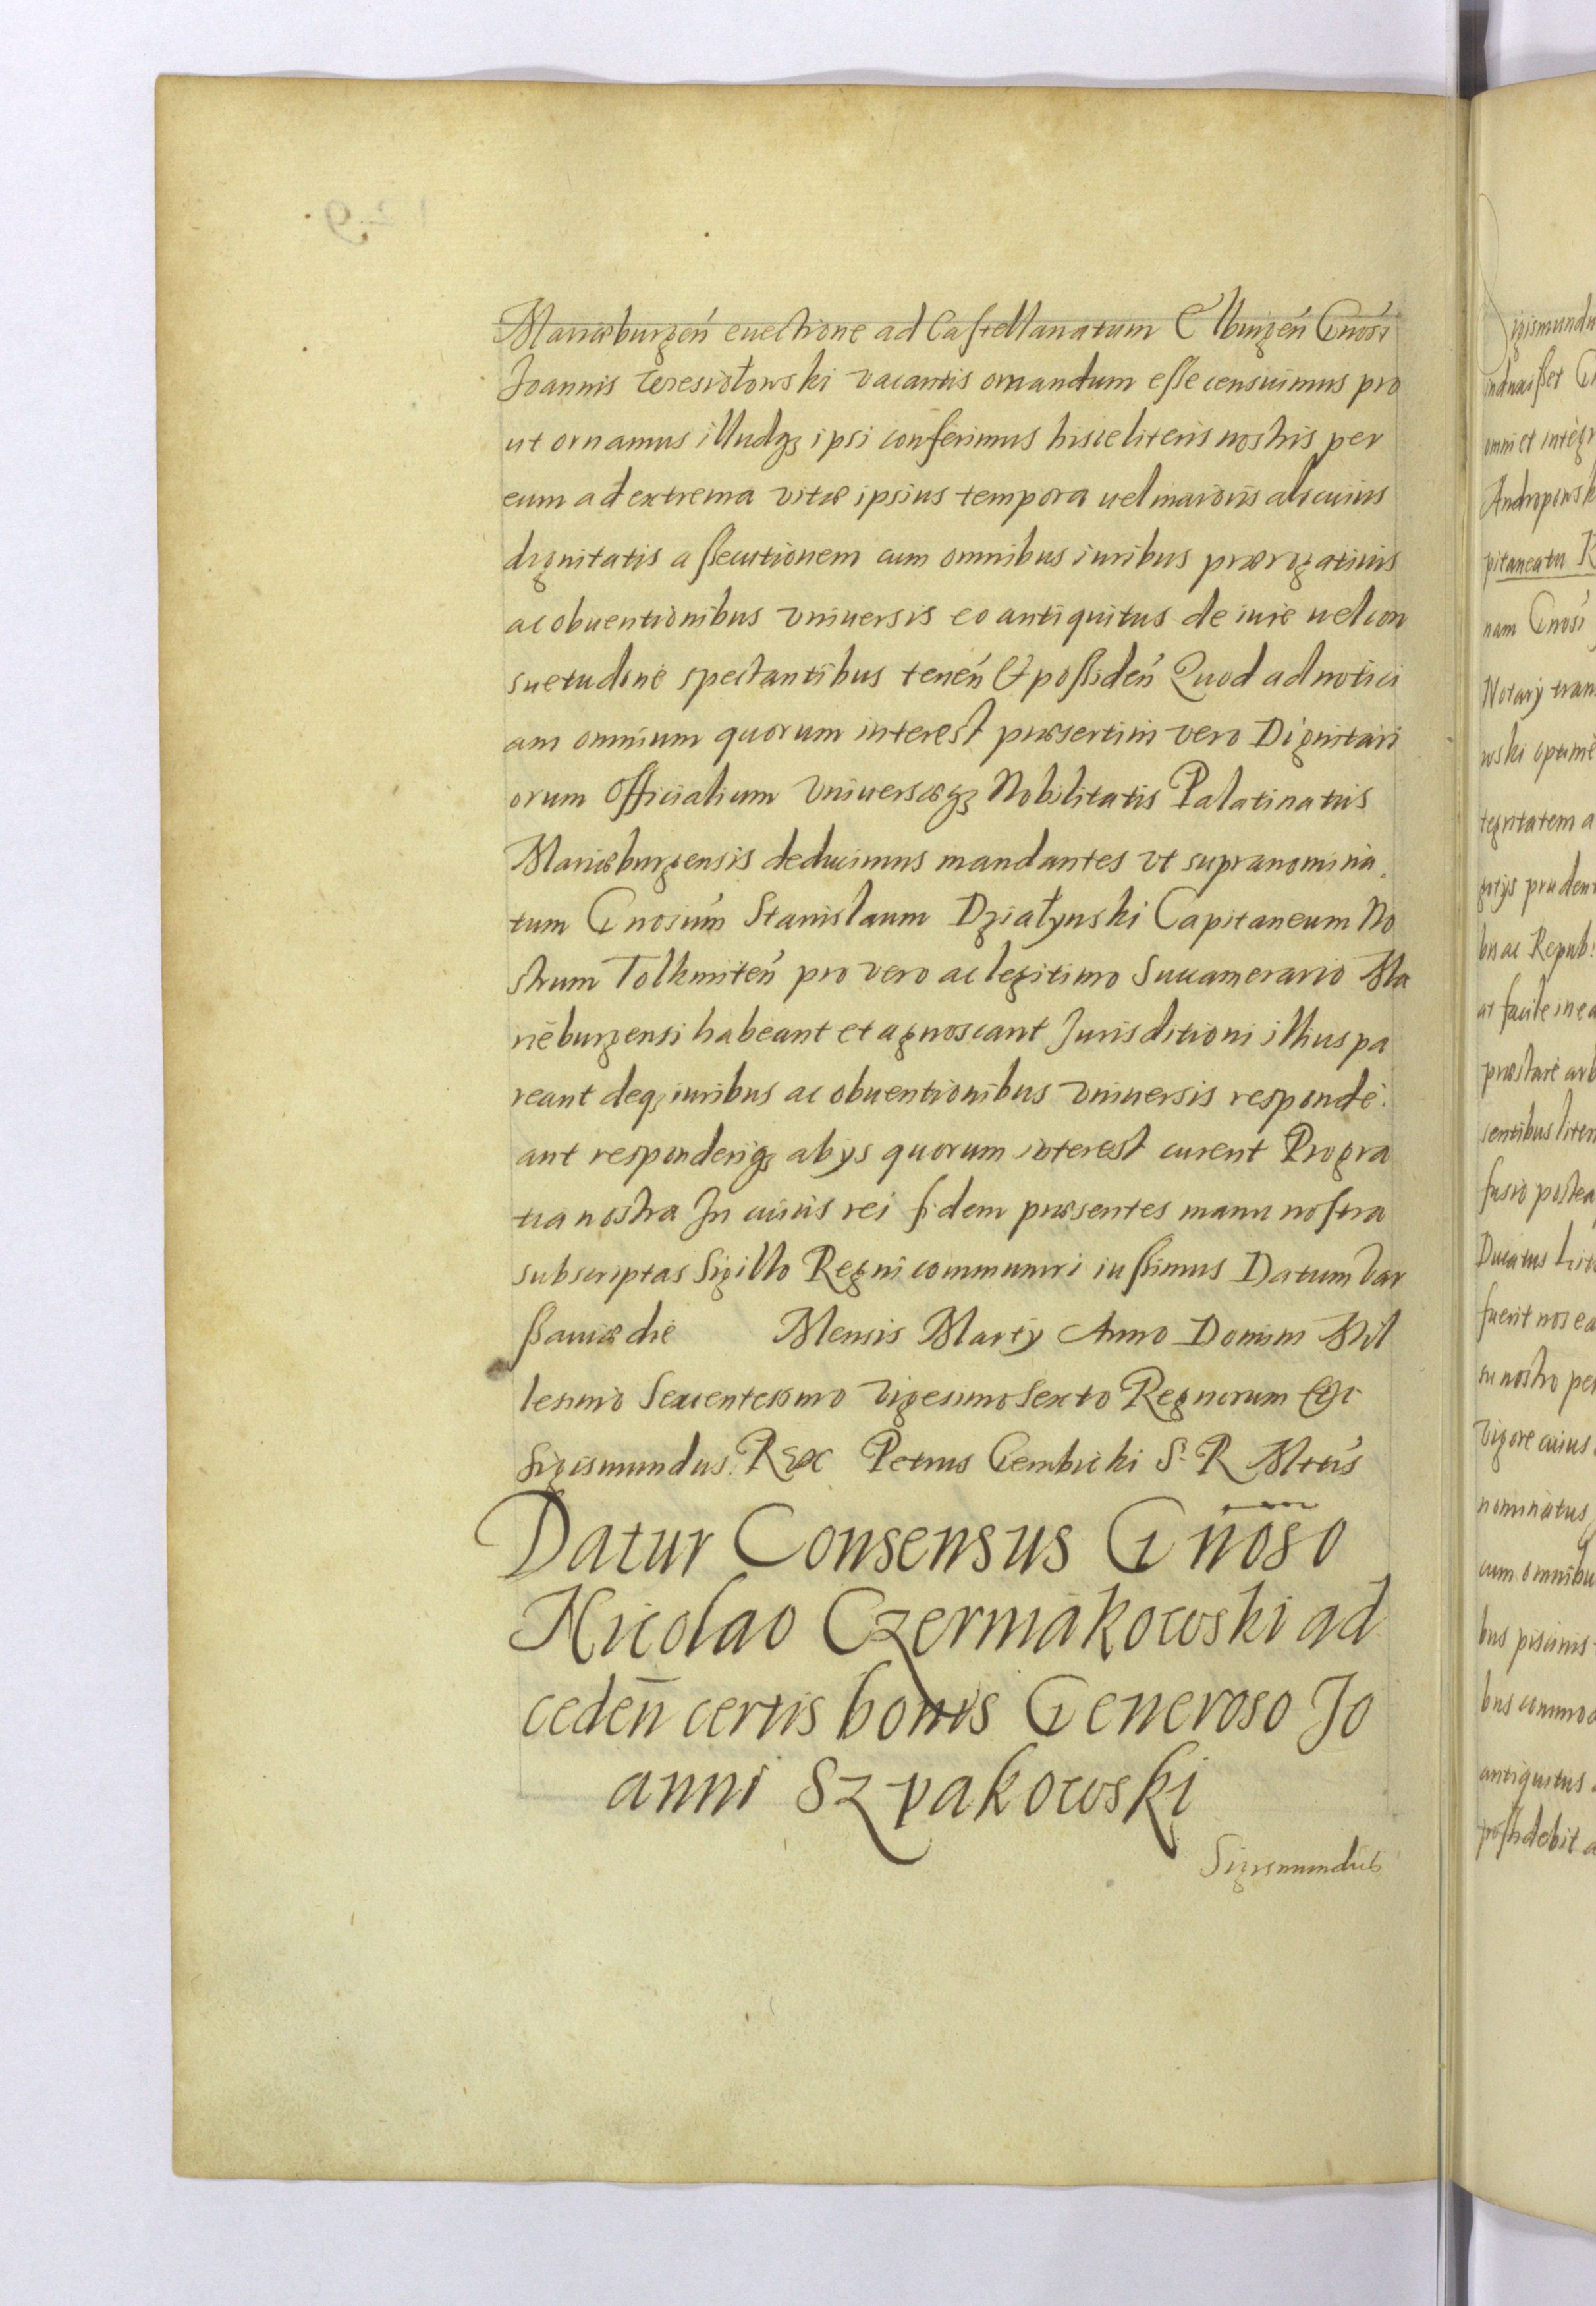 Mariæburgeń euectione ad Castellanatum Elbingeń Gnosi
Joannis Weresiołowski vacantis ornandum esse censuimus pro
ut ornamus illudq; ipsi conferimus hisce literis nostris per
eum ad extrema vitæ ipsius tempora uel maioris alicuius
dignitatis assecutionem cum omnibus iuribus prærogatiuis
ac obuentionibus vniuersis eo antiquitus de iure uel con
suetudine spectantibus teneń et possideń Quod ad notici
am omnium quorum interest præsertim vero Dignitari
orum Officialium vniuersæq; Nobilitatis Palatinatus
Mariæburgensis deducimus mandantes vt supranomina
tum Gnosum Stanislaum Działynski Capitaneum No
strum Tolkmiteń pro vero ac legitimo Succamerario Ma
rieburgensi habeant et agnoscant Jurisditioni illius pa
reant deq; iuribus ac obuentionibus vniuersis responde
ant responderiq; ab ijs quorum interest curent Pro gra
tia nostra In cuius rei fidem præsentes manu nostra
subscriptas Sigillo Regni communiri iussimus Datum Var
ssauiæ die Mensis Martij Anno Domini Mil
lesimo Sexcentesimo Vigesimo Sexto Regnorum etc
Sigismundus Rex Petrus Gembicki S. R. Mtis
Datur Consensus Gnoso
Nicolao Czermakowski ad
cedeń certis bonis Generoso Jo
anni Szpakowski
Sigismundus
129
Sigismundu
induxisset G
omni et integr
Andropows
pitaneatu K
nam Gnosi
Notarij tran
wski optime
tegritatem a
gotijs pruden
bus ac Repub:
at facile in ea
præstare arb
sentibus liter
fusio postea
Ducatus Lit
fuerit nos ea
su nostro per
vigore cuius
nominatus
cum omnibu
bus piscinis
bus commod
antiquitus
possidebit a